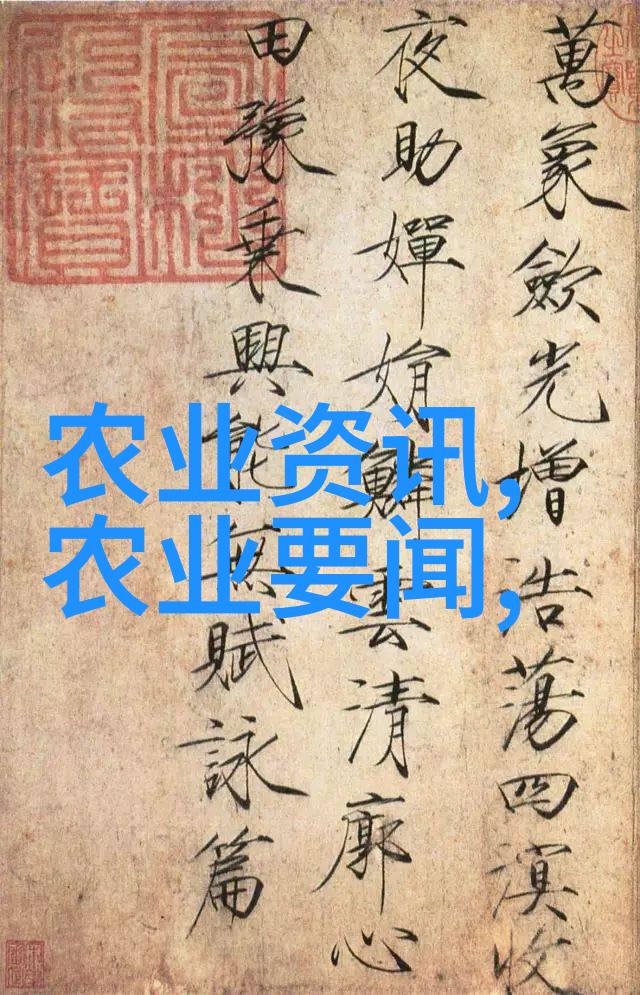 萬象歛光增浩蕩四溟收
夜助嬋娟鱗雲清廓心
田豫乘興能無賦詠篇
农业资讯,
农业要闻,